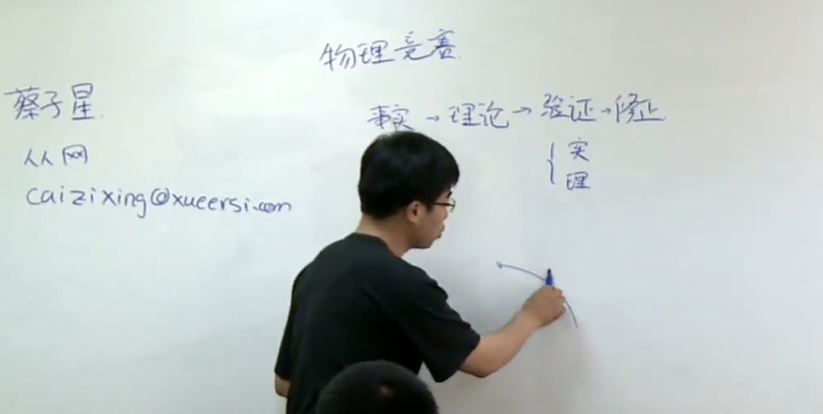 物理竞赛
蔡子星
人人网
caizixing@xueersi.com
事实→理论→验证→修正
实
理